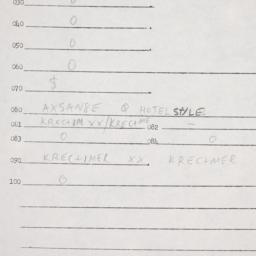 030 0
040 0
050 0
060 0
070 $
080 AXSANGE @ HOTEL STYLE
081 082 —
083 0 084 0
090 KRECHMER XX KRECHMER
100 0